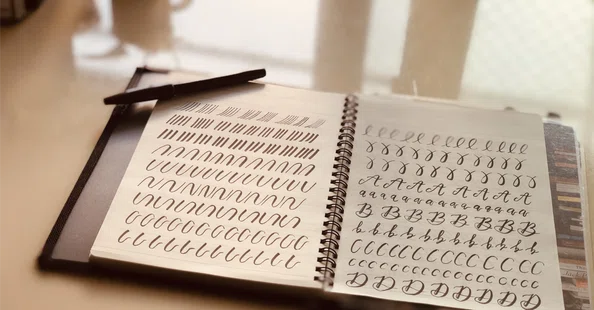 A A A A A A A A
a a a a a a a a a a a
B B B B B B B B
b b b b b b b b b b
C C C C C C C C C C C
c c c c c c c c c c c c
D D D D D D D D